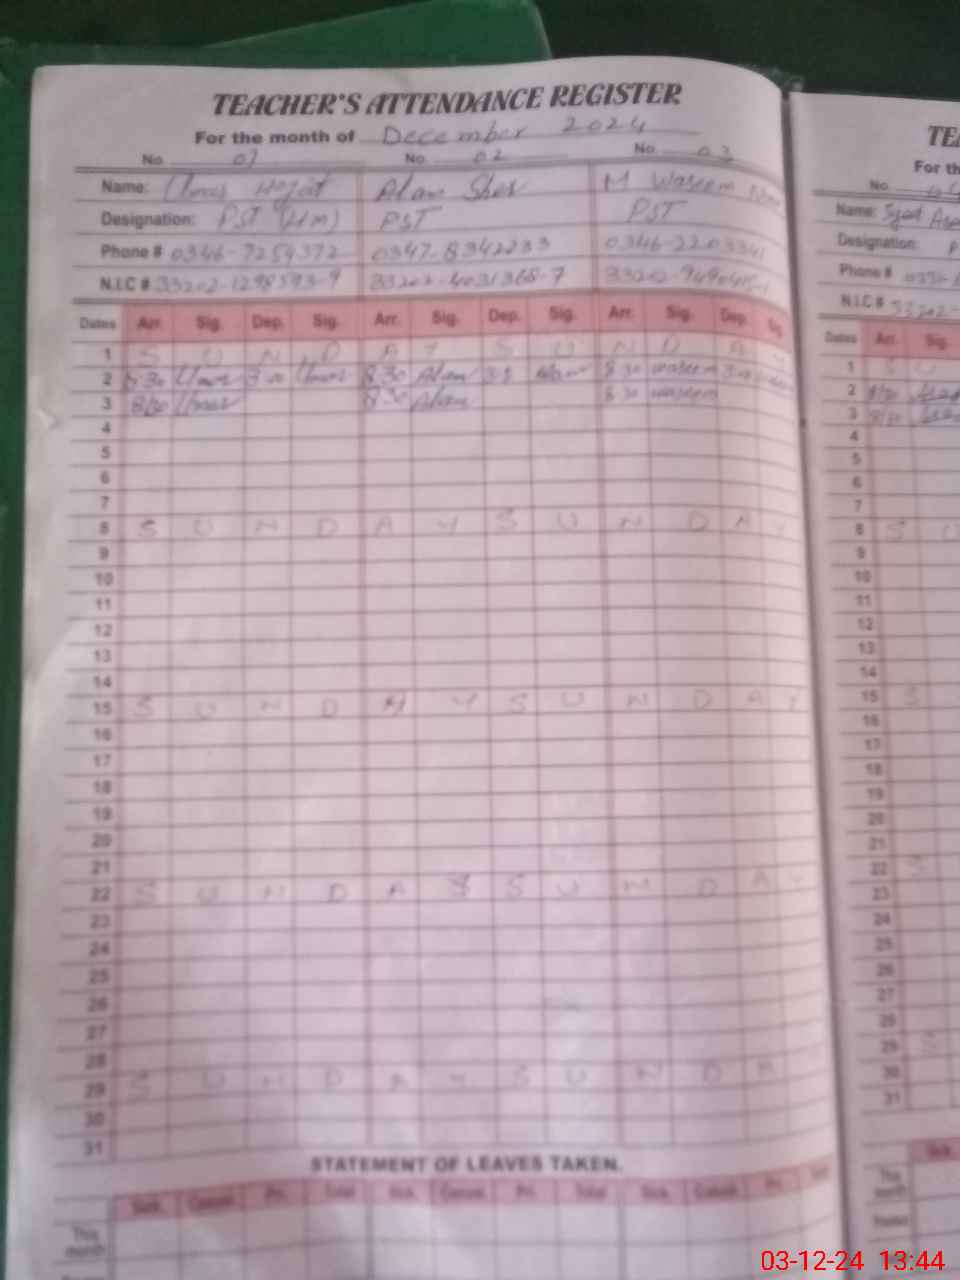 TEACHER'S ATTENDANCE REGISTER
For the month of December 2024
No 01 No 02 No 03
Name: Alam Sher M Waseem
Designation: PST (HM) PST PST
Phone # 0346-7254372 0347-8342233 0346-2203341
N.I.C # 33202-1298593-9 33202-4031368-7 33202-
Dates Arr. Sig. Dep. Sig. Arr. Sig. Dep. Sig. Arr. Sig. Dep. Sig.
1 S U N D A Y S U N D A Y
2 8:30 3:00 8:30 Alam Alam 8:30 waseem
3 8/30 8:30 Alam 8:30 waseem
4
5
6
7
8 S U N D A Y S U N D A Y
9
10
11
12
13
14
15 S U N D A Y S U N D A Y
16
17
18
19
20
21
22 S U N D A Y S U N D A Y
23
24
25
26
27
28
29 S U N D A Y S U N D A
30
31
STATEMENT OF LEAVES TAKEN.
Sick. Casual. Pri. Total Sick. Casual. Pri. Total Sick. Casual. Pri.
This month
TE
For th
No
Name: Syed
Designation: P
Phone #
N.I.C # 33202-
Dates Arr. Sig.
1 S U
2 8/30
3 8/30
4
5
6
7
8 S U
9
10
11
12
13
14
15 S
16
17
18
19
20
21
22 S
23
24
25
26
27
28
29 S
30
31
This month
03-12-24 13:44